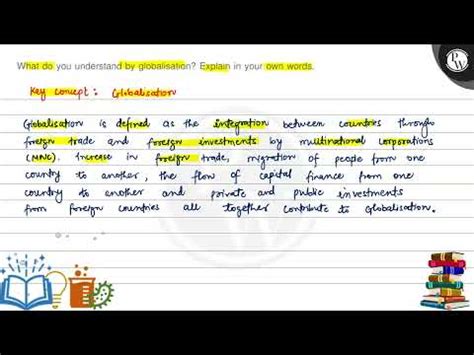 What do you understand by globalisation? Explain in your own words.
Key concept : Globalisation
Globalisation is defined as the integration between countries through
foreign trade and foreign investments by multinational corporations
(MNC). Increase in foreign trade, migration of people from one
country to another, the flow of capital finance from one
country to another and private and public investments
from foreign countries all together contribute to Globalisation.